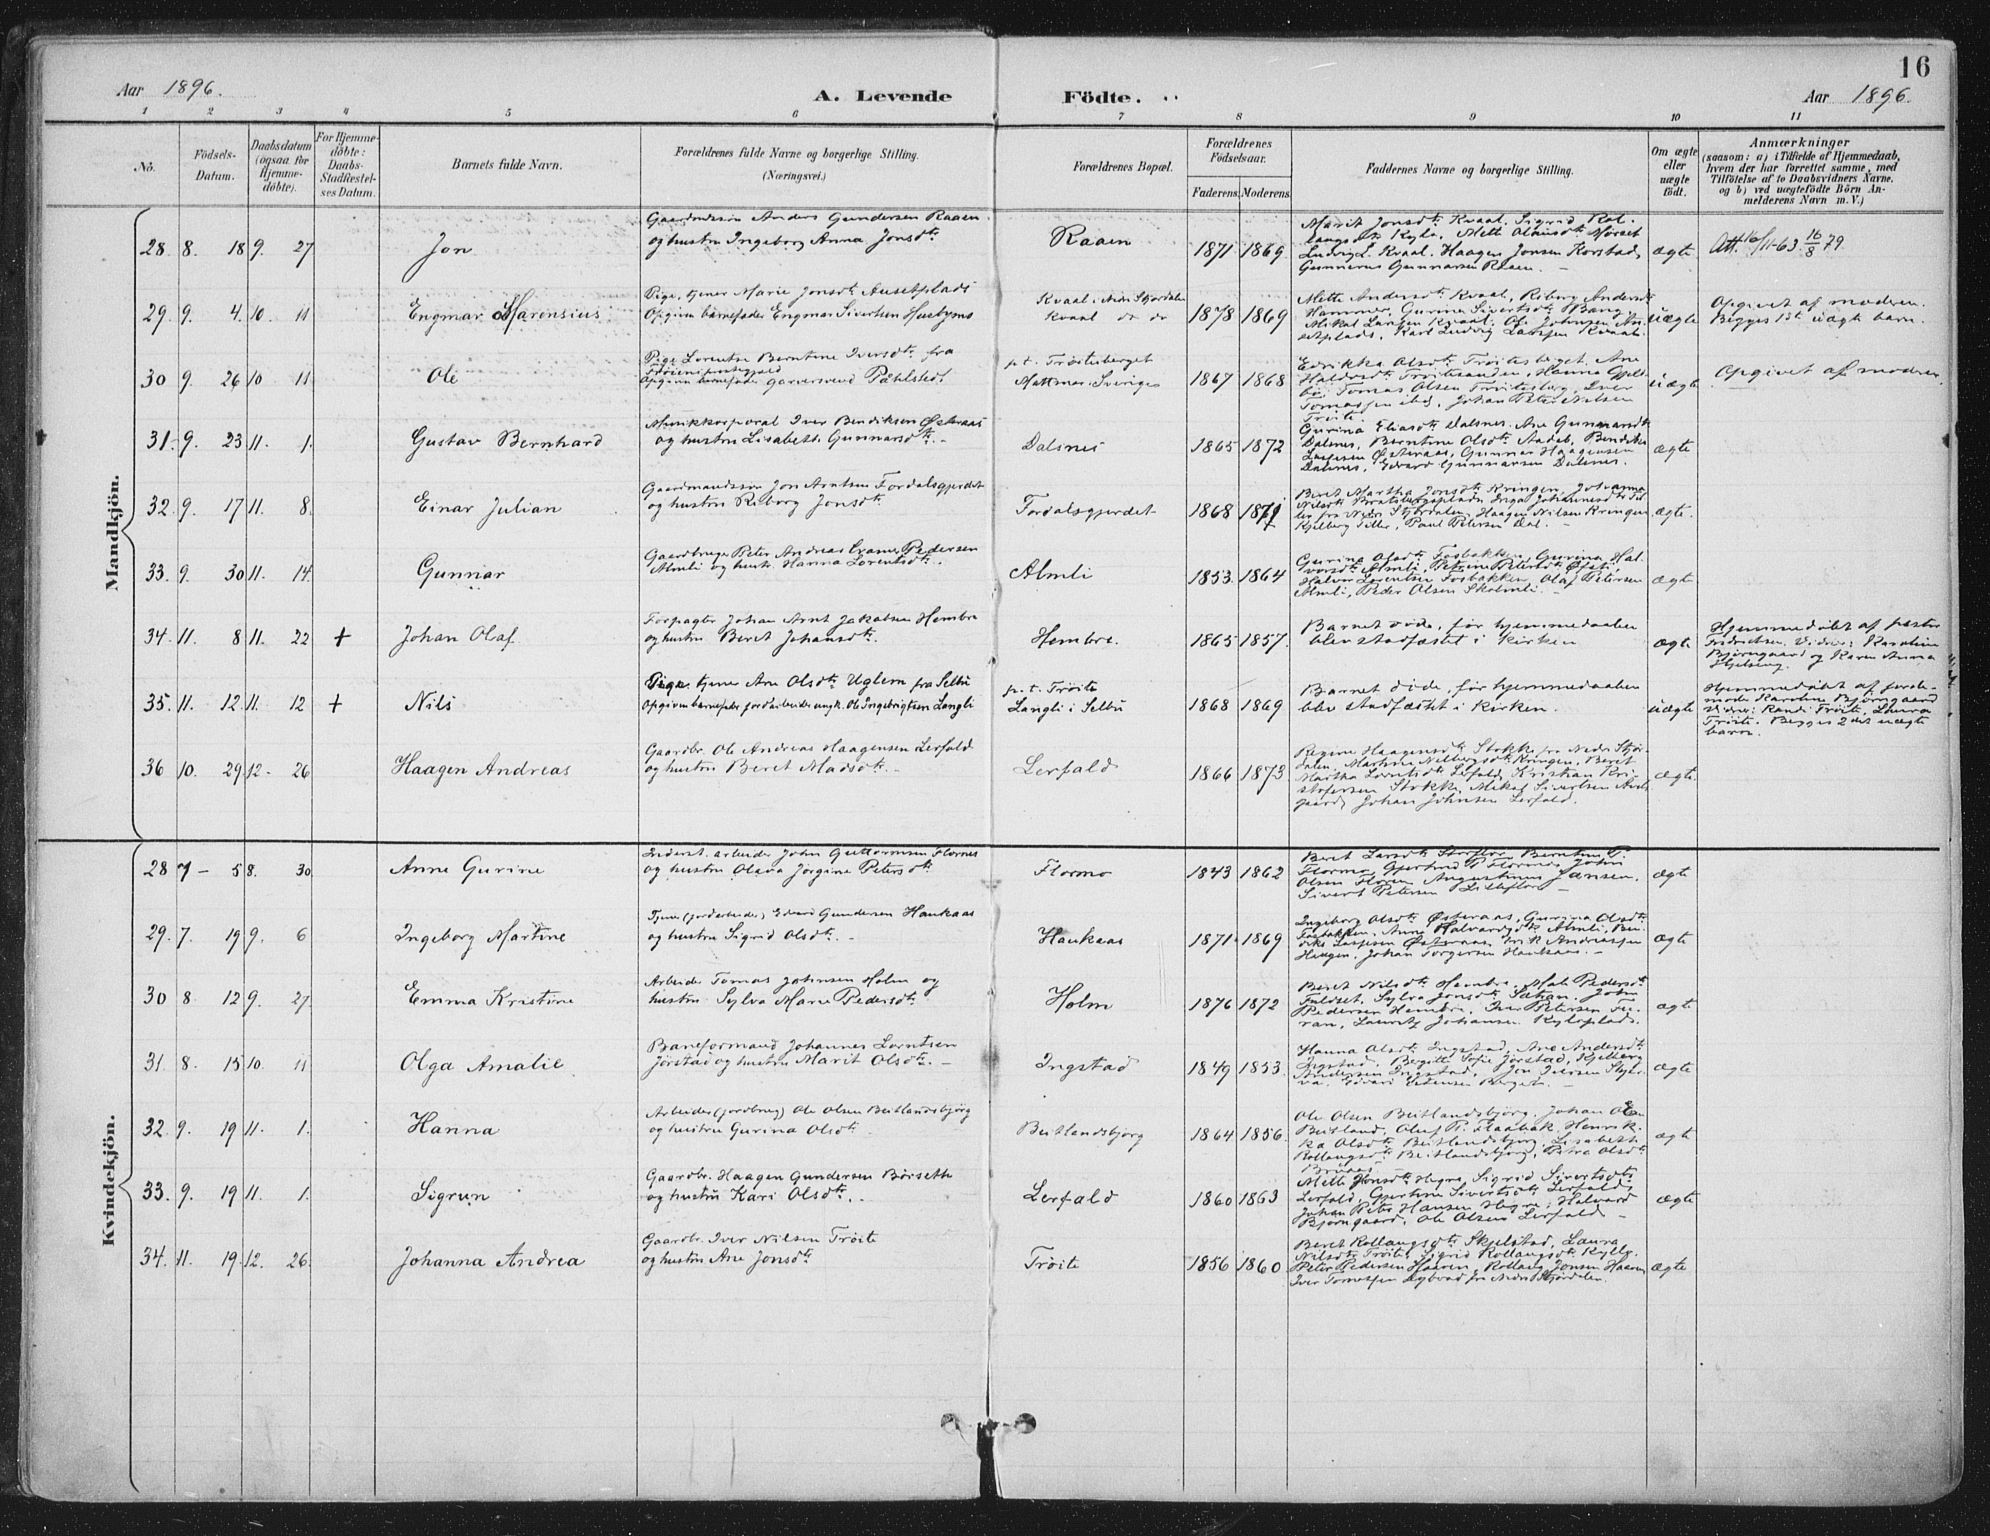 16
Aar 1896.
A. Levende Födte.
Aar 1896.
1 2 3 4 5 6 7 8 9 10 11
No.
Födsels-Datum.
Daabsdatum (ogsaa for Hjemmedöbte).
For Hjemmedöbte: Daabs-Stadfæstelses Datum.
Barnets fulde Navn.
Forældrenes fulde Navne og borgerlige Stilling.
(Næringsvei.)
Forældrenes Bopæl.
Forældrenes Födselsaar.
Faderens. Moderens.
Faddernes Navne og borgerlige Stilling.
Om ægte eller uægte födt.
Anmærkninger
(saasom: a) i Tilfælde af Hjemmedaab, hvem der har forrettet samme, med Tilföielse af to Daabsvidners Navne, og b) ved uægtefödte Börn Anmelderens Navn m. V.)
Mandkjön.
28. 8. 18 9. 27 Jon
Gaardmdssøn Anders Gundersen Raaen
og hustru Ingeborg Anna Jonsdtr
Raaen 1871 1869
Marit Jonsdtr Kvaal, Sigrid Rol-
langsdtr Kylo, Mette Olausdtr Mørset
Ludvig L. Kvaal, Haagen Jonsen Korstad,
Gunnerus Gunnarsen Raaen.
ægte Att. 16/11-63. 16/8 79
29. 9. 4. 10. 11 Engmar Marensius
Pige, tjener Marie Jonsdtr Ausetplads
Opgiven barnefader Engmar Sivertsen Husbymo
Kvaal i Nedr. Stjørdalen
Kvaal do do
1878 1869
Mette Andersdtr Kvaal, Roborg Andersdtr
Hammer, Gurina Sivertsdtr Bang
Mikal Larsen Kvaal, Ole Johnsen Au-
setplads, Karl Ludvig Larssen Kvaal.
uægte
Opgivet af moderen.
Begges 1st uægte barn.
30 9. 26 10 11 Ole
Pige Lorentse Berntine Iversdtr fra
Opgiven barnefader garversvend Påhlstedt
p.t. Trøitesberget
Mattmar i Sverige
1867 1868
Edrikka Olsdtr Trøitesberget, Ane
Haldorsdtr Trøitesanden, Hanna Gjeld-
bø, Tomas Olsen Trøitesberg, Iver
Tomassen ibd, Johan Peter Nielsen
Trøite
uægte Opgivet af moderen.
31. 9. 23 11. 1. Gustav Bernhard
Musikkorporal Iver Bendiksen Østeraas
og hustru Lisabeth Gunnarsdtr
Dalsnes 1865 1872
Gurina Eliasdtr Dalsnes, Ane Gunnarsdtr
Dalsnes, Berntine Olsdtr Aadal, Bendik
Larssen Østeraas, Gunnar Haagensen
Dalsnes, Edvard Gunnarsen Dalsnes.
ægte
32. 9. 17 11. 8. Einar Julian
Gaardmandssøn Jon Arntsen Fordalsgjerdet
og hustru Roborg Jonsdtr
Fordalsgjerdet 1868 1871
Beret Martha Jonsdtr Kringen, Johanna
Haagen Nilsen Kringen
Kjelberg Tiller, Paul Petersen Dal.
ægte.
33. 9. 30 11. 14. Gunnar
Gaardbruger Peter Andreas Cramer Pedersen
Almli og hustr. Hanna Lorentsdtr.
Almli 1853 1864
Gurina Olsdtr Fosbakken, Gurina Hal-
vorsdtr Almli, Petrine Petersdtr Øfsti,
Halvor Lorentsen Fosbakken, Olaf Petersen
Almli, Peder Olsen Skolmli.
ægte
34. 11. 8 11. 22 + Johan Olaf
Forpagter Johan Arnt Jakobsen Hembre
og hustru Beret Johansdtr.
Hembre. 1865 1857.
Barnet døde, før hjemmedaaben
blev stadfæstet i kirken
ægte
Hjemmedøbt af præsten
Fredriksen. Vidner: Karoline
Bjørngaard og Karen Anna
Hjelseng.
35. 11. 12 11. 12 + Nils
Pige, tjener Ane Olsdtr Uglem fra Selbu
Opgiven barnefader jordarbeider ungk. Ole Ingebrigtsen Langli
p.t. Trøite
Langli i Selbu
1868 1869
Barnet døde, før hjemmedaaben
blev stadfæstet i kirken.
uægte
Hjemmedøbt af jorde-
moder Karoline Bjørngaard
Vidner: Randi Trøite, Laura
Trøite. Begges 2det uægte
barn.
36 10. 29 12. 26 Haagen Andreas
Gaardbr. Ole Andreas Haagensen Lerfald
og hustru Beret Madsdtr.
Lerfald 1866 1873
Regine Haagensdtr Stokke fra Nedr. Stjør-
dalen, Martine Nilbergsdtr Kringen, Beret
Martha Lorentsdtr Lerfald, Kristian Kri-
stofersen Stokke, Mikal Sivertsen Aune-
gaard, Johan Johnsen Lerfald.
ægte.
Kvindekjön.
28 7 - 5 8. 30 Anne Gurine
Inderst. arbeider John Guttormsen Flornes
og hustru Olava Jørgine Petersdtr
Flormo 1843 1862
Beret Larsdtr Storflor, Berntine P.
Flormo, Gjertrud P. Flornes, John
Olsen Floren, Augustinus Jansen,
Sivert Petersen Litleflor.
ægte
29. 7. 19 9. 6 Ingeborg Martine
Tjener (jordarbeider) Edvard Gundersen Haukaas
og hustru Sigrid Olsdtr.
Haukaas 1871 1869
Ingeborg Olsdtr Østeraas, Gurina Olsdtr
Fosbakken, Anne Halvardsdtr Almli, Ben-
dik Larssen Østeraas, Erik Andreassen
Haugen, Johan Torgersen Haukaas.
ægte
30 8. 12 9. 27 Emma Kristine
Arbeider Tomas Johnsen Holm og
hustru Sylva Marie Pedersdtr
Holm 1876 1872
Beret Nilsdtr Hembre, Mali Pedersdtr
Fuldset, Sylva Jonsdtr Sætran, John
Pedersen Hembre, Iver Petersen Fue-
ran, Lauritz Johansen Kyloplads.
ægte
31. 8. 15 10. 11 Olga Amalie
Baneformand Johannes Lorntsen
Jørstad og hustru Marit Olsdtr.
Ingstad 1849 1853.
Hanna Olsdtr Ingstad, Ane Andersdtr
Ingstad, Bergitte Sofie Jørstad, Kjelberg
Andersen Ingstad, Jon Iversen Stjer-
ægte
32. 9. 19 11. 1. Hanna
Arbeider (jordbrug) Ole Olsen Beitlandsbjørg
og hustru Gurina Olsdtr.
Beitlandsbjörg 1864 1856.
Ole Olsen Beitlandsbjørg, Johan Olsen
Beitland, Oluf P. Flaabak, Henrik-
ka Olsdtr Beitlandsbjørg, Lisabeth
Rollaugsdtr Beitlandsbjørg, Petra Olsdtr
Bruaas
ægte
33. 9. 19 11. 1. Sigrun
Gaardbr. Haagen Gundersen Børseth
og hustru Kari Olsdtr.
Lerfald 1860 1863
Mette Jonsdtr Hegre, Sigrid Sivertsdtr
Lerfald, Gjertine Sivertsdtr Lerfald,
Johan Peter Hansen Hegre, Halvard
Bjørngaard, Ole Olsen Lerfald.
ægte
34. 11. 19. 12. 26. Johanna Andrea
Gaardbr. Iver Nilsen Trøite
og hustru Ane Jonsdtr
Trøite 1856 1860
Beret Rollaugsdtr Skjelstad, Laura
Nilsdtr Trøite, Sigrid Rollaugsdtr Kyllo,
Peter Pedersen Haaven, Rollaug Jonsen Haaven,
Iver Tomassen Dybvad fra Nedre Stjørdalen.
ægte